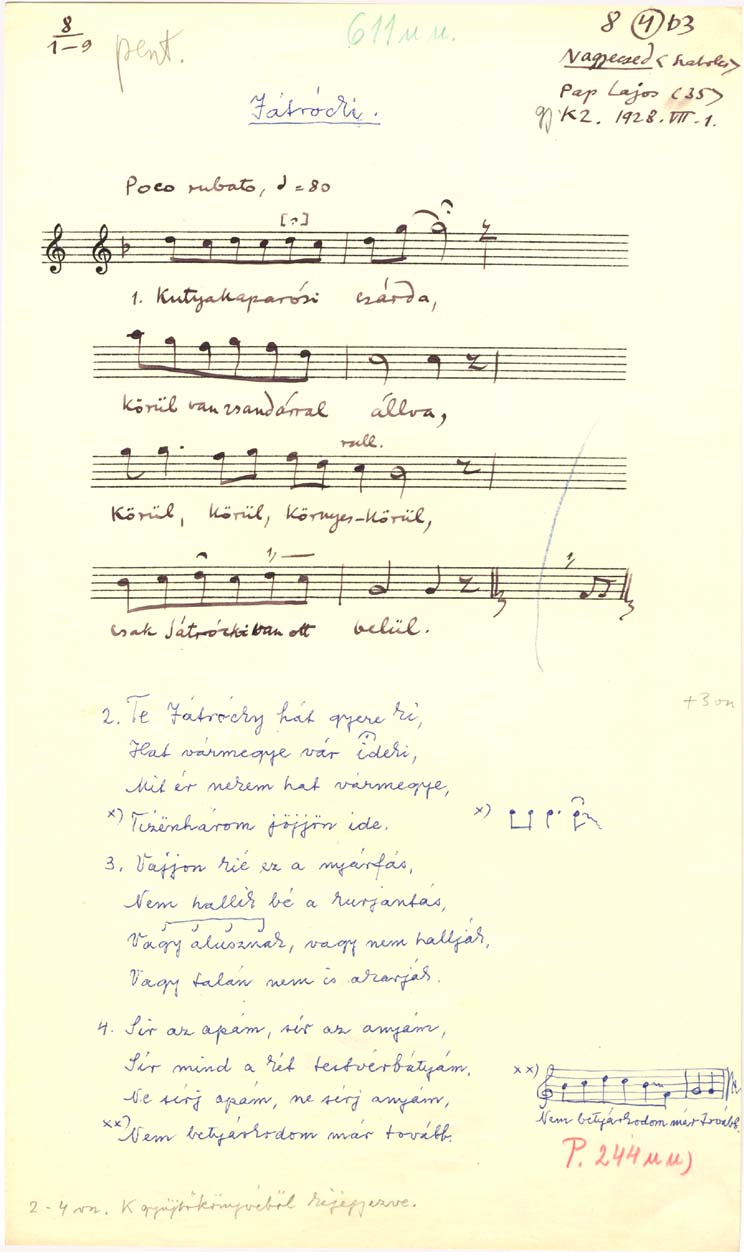 8
1–9
pent.
611 u u.
8 (4) b3
Nagyecsed (Szabolcs)
Pap Lajos (35)
gy. K Z. 1928. VII. 1.
Játrócki.
Poco rubato, = 80
1. Kutyakaparósi csárda,
Körül van zsandárral állva,
rall.
Körül, körül, környes-körül,
csak Játrócki van ott belül.
2. Te Játrócky hát gyere ki,
Hat vármegye vár ideki,
Mit ér nekem hat vármegye,
x) Tizënhárom jöjjön ide.
x)
+ 3 vn
3. Vajjon kié ez a nyárfás,
Nem hallik bé a kurjantás,
Vagy alusznak, vagy nem hallják,
Vagy talán nem is akarják.
4. Sir az apám, sír az anyám,
Sír mind a két testvérbátyám.
Ne sírj apám, ne sírj anyám,
xx) Nem betyárkodom már tovább.
xx)
Nem betyárkodom már tovább.
P. 244 u u)
2-4 vn. K gyűjtőkönyvéből kijegyezve.